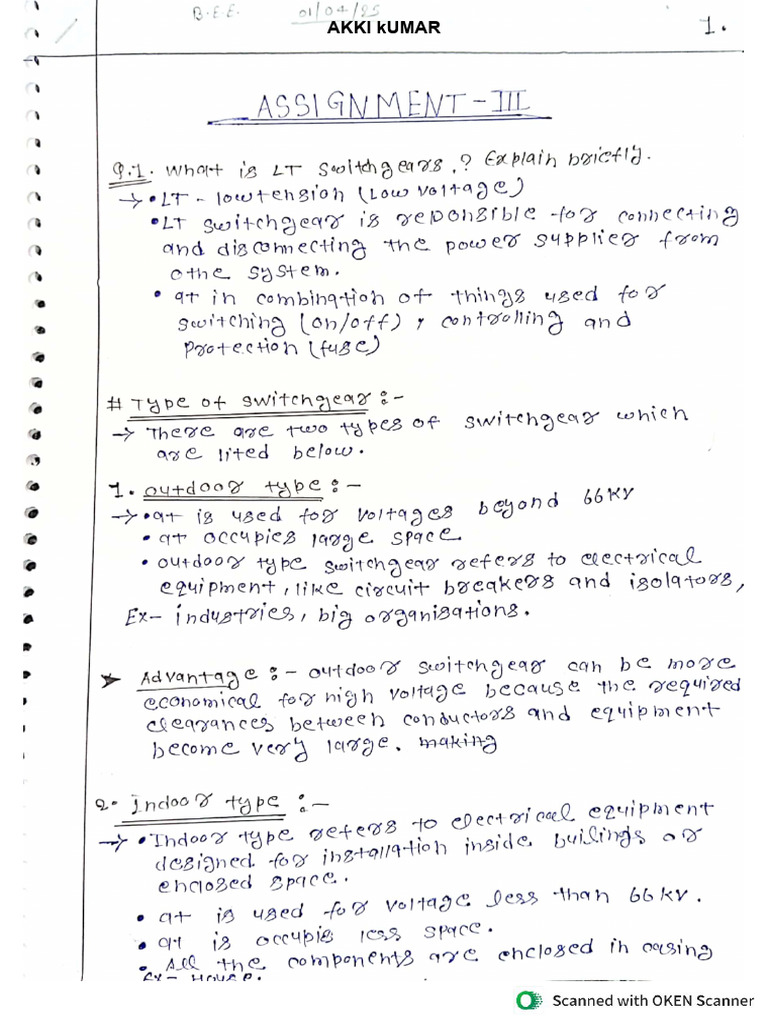 B.E.E.
01/04/25
AKKI kUMAR
1.
ASSIGNMENT-III
Q.1. What is LT Switchgears,? Explain briefly.
→ • LT - lowtension (Low voltage)
• LT switchgear is reponsible for connecting
and disconnecting the power supplier from
othe system.
• at in combination of things used for
switching (on/off), controlling and
Protection (fuse)
# Type of switchgear :-
→ There are two types of switchgear which
are lited below.
1. outdoor type :-
→ • at is used for voltages beyond 66KV
• at occupies large space.
• outdoor type switchgear refers to electrical
equipment, like circuit breakers and isolators,
Ex- industries, big organisations.
Advantage :- outdoor switchgear can be more
economical for high voltage because the required
clearances between conductors and equipment
become very large. making
2. indoor type :-
→ • Indoor type refers to electrical equipment
designed for installation inside builings or
enclosed space.
• at is used for voltage less than 66kv.
• at is occupis less space.
• All the components are enclosed in casing
Ex- House.
Scanned with OKEN Scanner